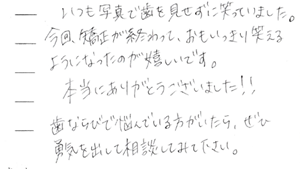 いつも写真で歯を見せずに笑っていました。
今回、矯正が終わって、おもいっきり笑える
ようになったのが嬉しいです。
本当にありがとうございました!!
歯ならびで悩んでいる方がいたら、ぜひ
勇気を出して相談してみて下さい。